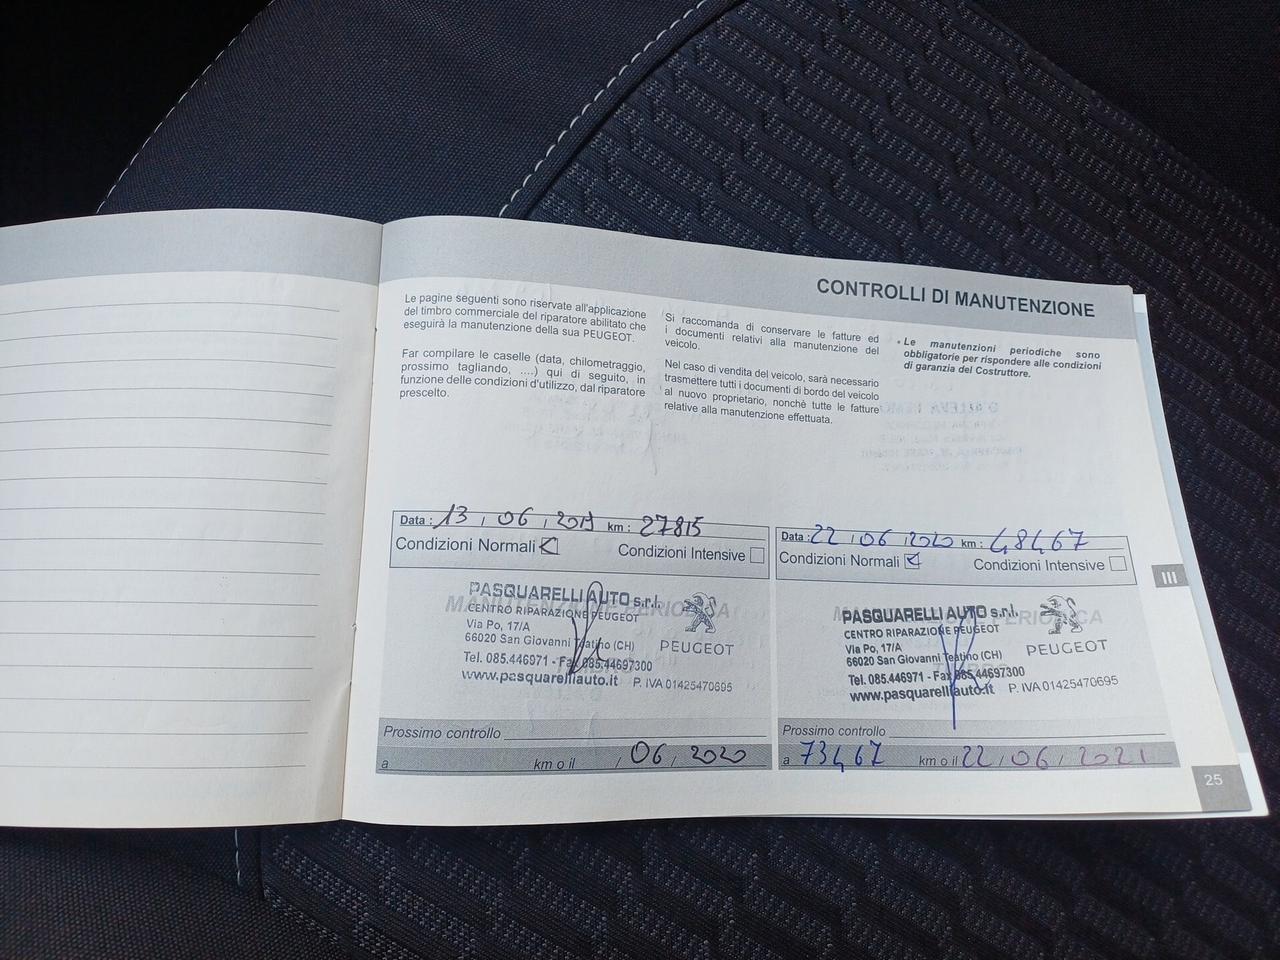 CONTROLLI DI MANUTENZIONE
Le pagine seguenti sono riservate all'applicazione
del timbro commerciale del riparatore abilitato che
eseguirà la manutenzione della sua PEUGEOT.
Far compilare le caselle (data, chilometraggio,
prossimo tagliando, ....) qui di seguito, in
funzione delle condizioni d'utilizzo, dal riparatore
prescelto.
Si raccomanda di conservare le fatture ed
i documenti relativi alla manutenzione del
veicolo.
Nel caso di vendita del veicolo, sarà necessario
trasmettere tutti i documenti di bordo del veicolo
al nuovo proprietario, nonchè tutte le fatture
relative alla manutenzione effettuata.
• Le manutenzioni periodiche sono
obbligatorie per rispondere alle condizioni
di garanzia del Costruttore.
Data : 13 / 06 / 2019 km : 27815
Condizioni Normali Condizioni Intensive
MANUTENZIONE PERIODICA
PASQUARELLI AUTO s.r.l.
CENTRO RIPARAZIONE PEUGEOT
Via Po, 17/A
66020 San Giovanni Teatino (CH)
Tel. 085.446971 - Fax 085.44697300
www.pasquarelliauto.it P. IVA 01425470695
PEUGEOT
Prossimo controllo
a km o il / 06 / 2020
Data : 22 / 06 / 2020 km : 48467
Condizioni Normali Condizioni Intensive
MANUTENZIONE PERIODICA
PASQUARELLI AUTO s.r.l.
CENTRO RIPARAZIONE PEUGEOT
Via Po, 17/A
66020 San Giovanni Teatino (CH)
Tel. 085.446971 - Fax 085.44697300
www.pasquarelliauto.it P. IVA 01425470695
PEUGEOT
Prossimo controllo
a 73467 km o il 22 / 06 / 2021
III
25